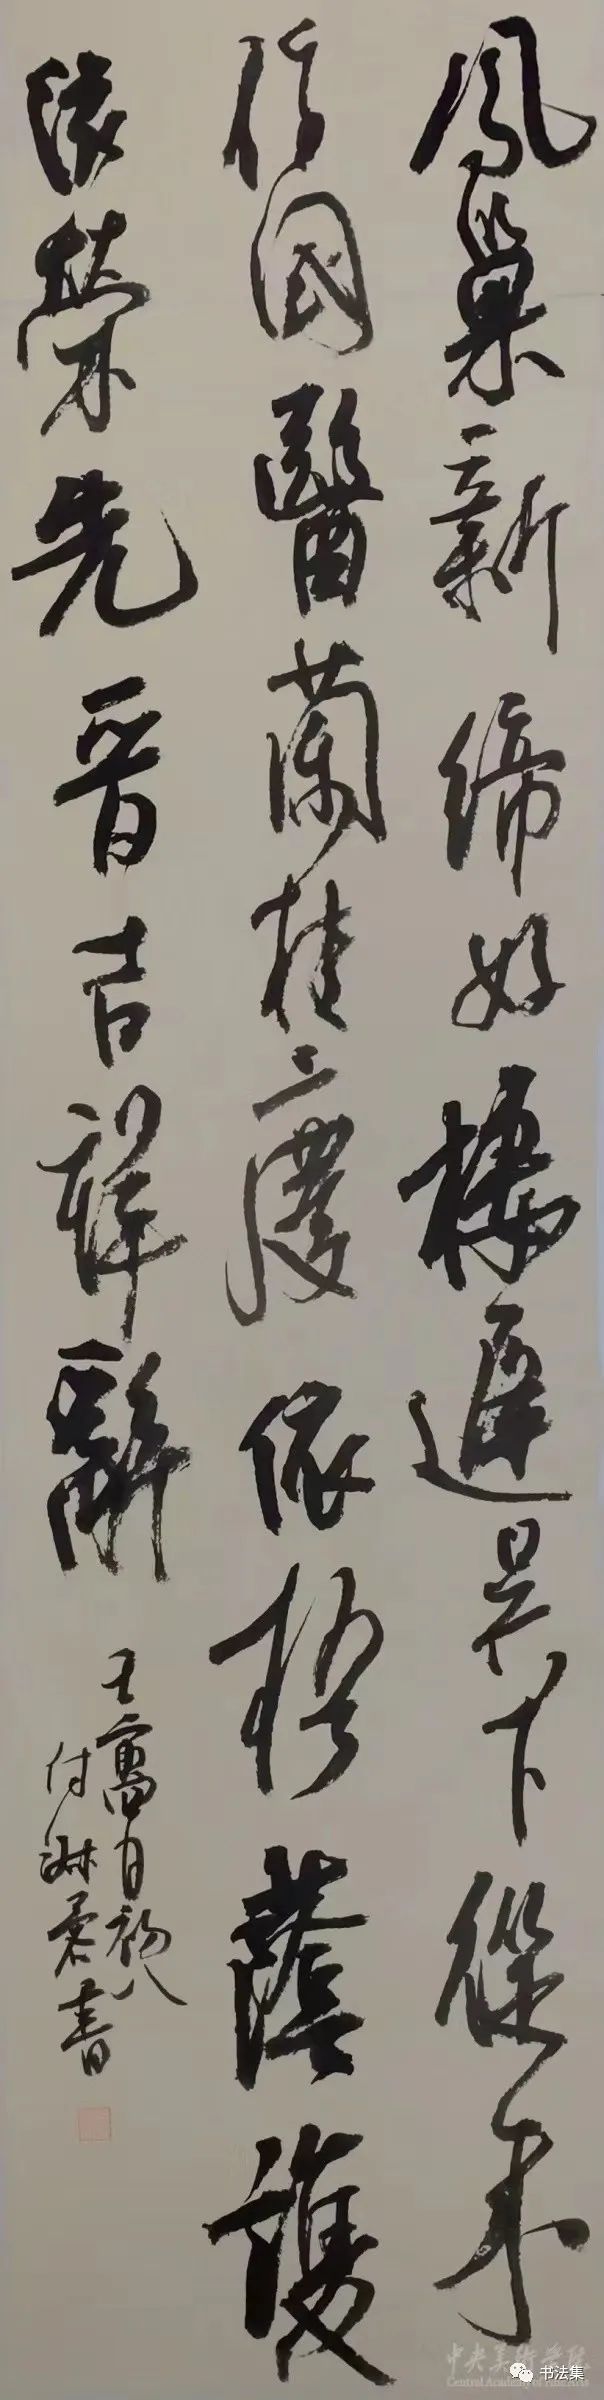 鳳巢新締好棲遲吳下從來
得國醫蘭桂慶依蔭護
滋榮先晉吉祥辭
壬寅月初八
付淋書
中央美術學院
Central Academy of Fine Arts
书法集